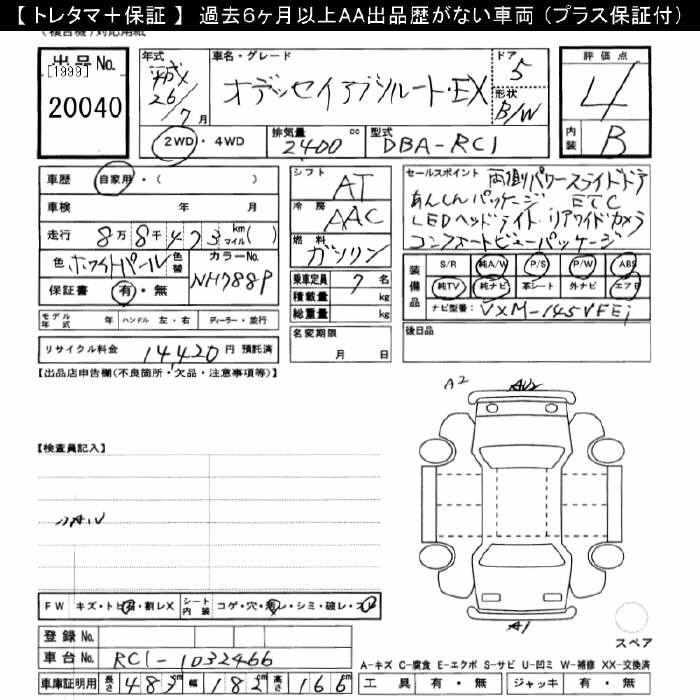 【 トレタマ＋保証 】 過去6ヶ月以上AA出品歴がない車両（プラス保証付）
出品No. [1999] 20040
年式 平成 26年 7月
車名・グレード オデッセイアブソルート・EX
ドア 5
形状 B/W
評価点 4
内装 B
2WD・4WD 排気量 2400 cc 型式 DBA-RC1
車歴 自家用・（ ）
車検 年 月
走行 8万8千473 km マイル（ ）
色 ホワイトパール 色替 カラーNo. NH788P
保証書 有・無
モデル年式 年 ハンドル 左・右 ディーラー・並行
リサイクル料金 14420 円 預託済
シフト AT
冷房 AAC
燃料 ガソリン
乗車定員 7 名
積載量 kg
総重量 kg
名変期限 月 日
セールスポイント 両側パワースライドドア
あんしんパッケージ ETC
LEDヘッドライト・リアワイドカメラ
コンフォートビューパッケージ
装備品 S/R 純A/W P/S P/W ABS
純TV 純ナビ 革シート 外ナビ エアB
ナビ型番： VXM-145VFEi
後日品
【出品店申告欄(不良箇所・欠品・注意事項等)】
A2
【検査員記入】
FW キズ・トビ石・割レX シート内装 コゲ・穴・ ・シミ・破レ・
登録No.
車台No. RC1-1032466
車庫証明用 長さ 483 cm 幅 182 cm 高さ 166 cm
A1
スペア
A-キズ C-腐食 E-エクボ S-サビ U-凹ミ W-補修 XX-交換済
工具 有・無 ジャッキ 有・無